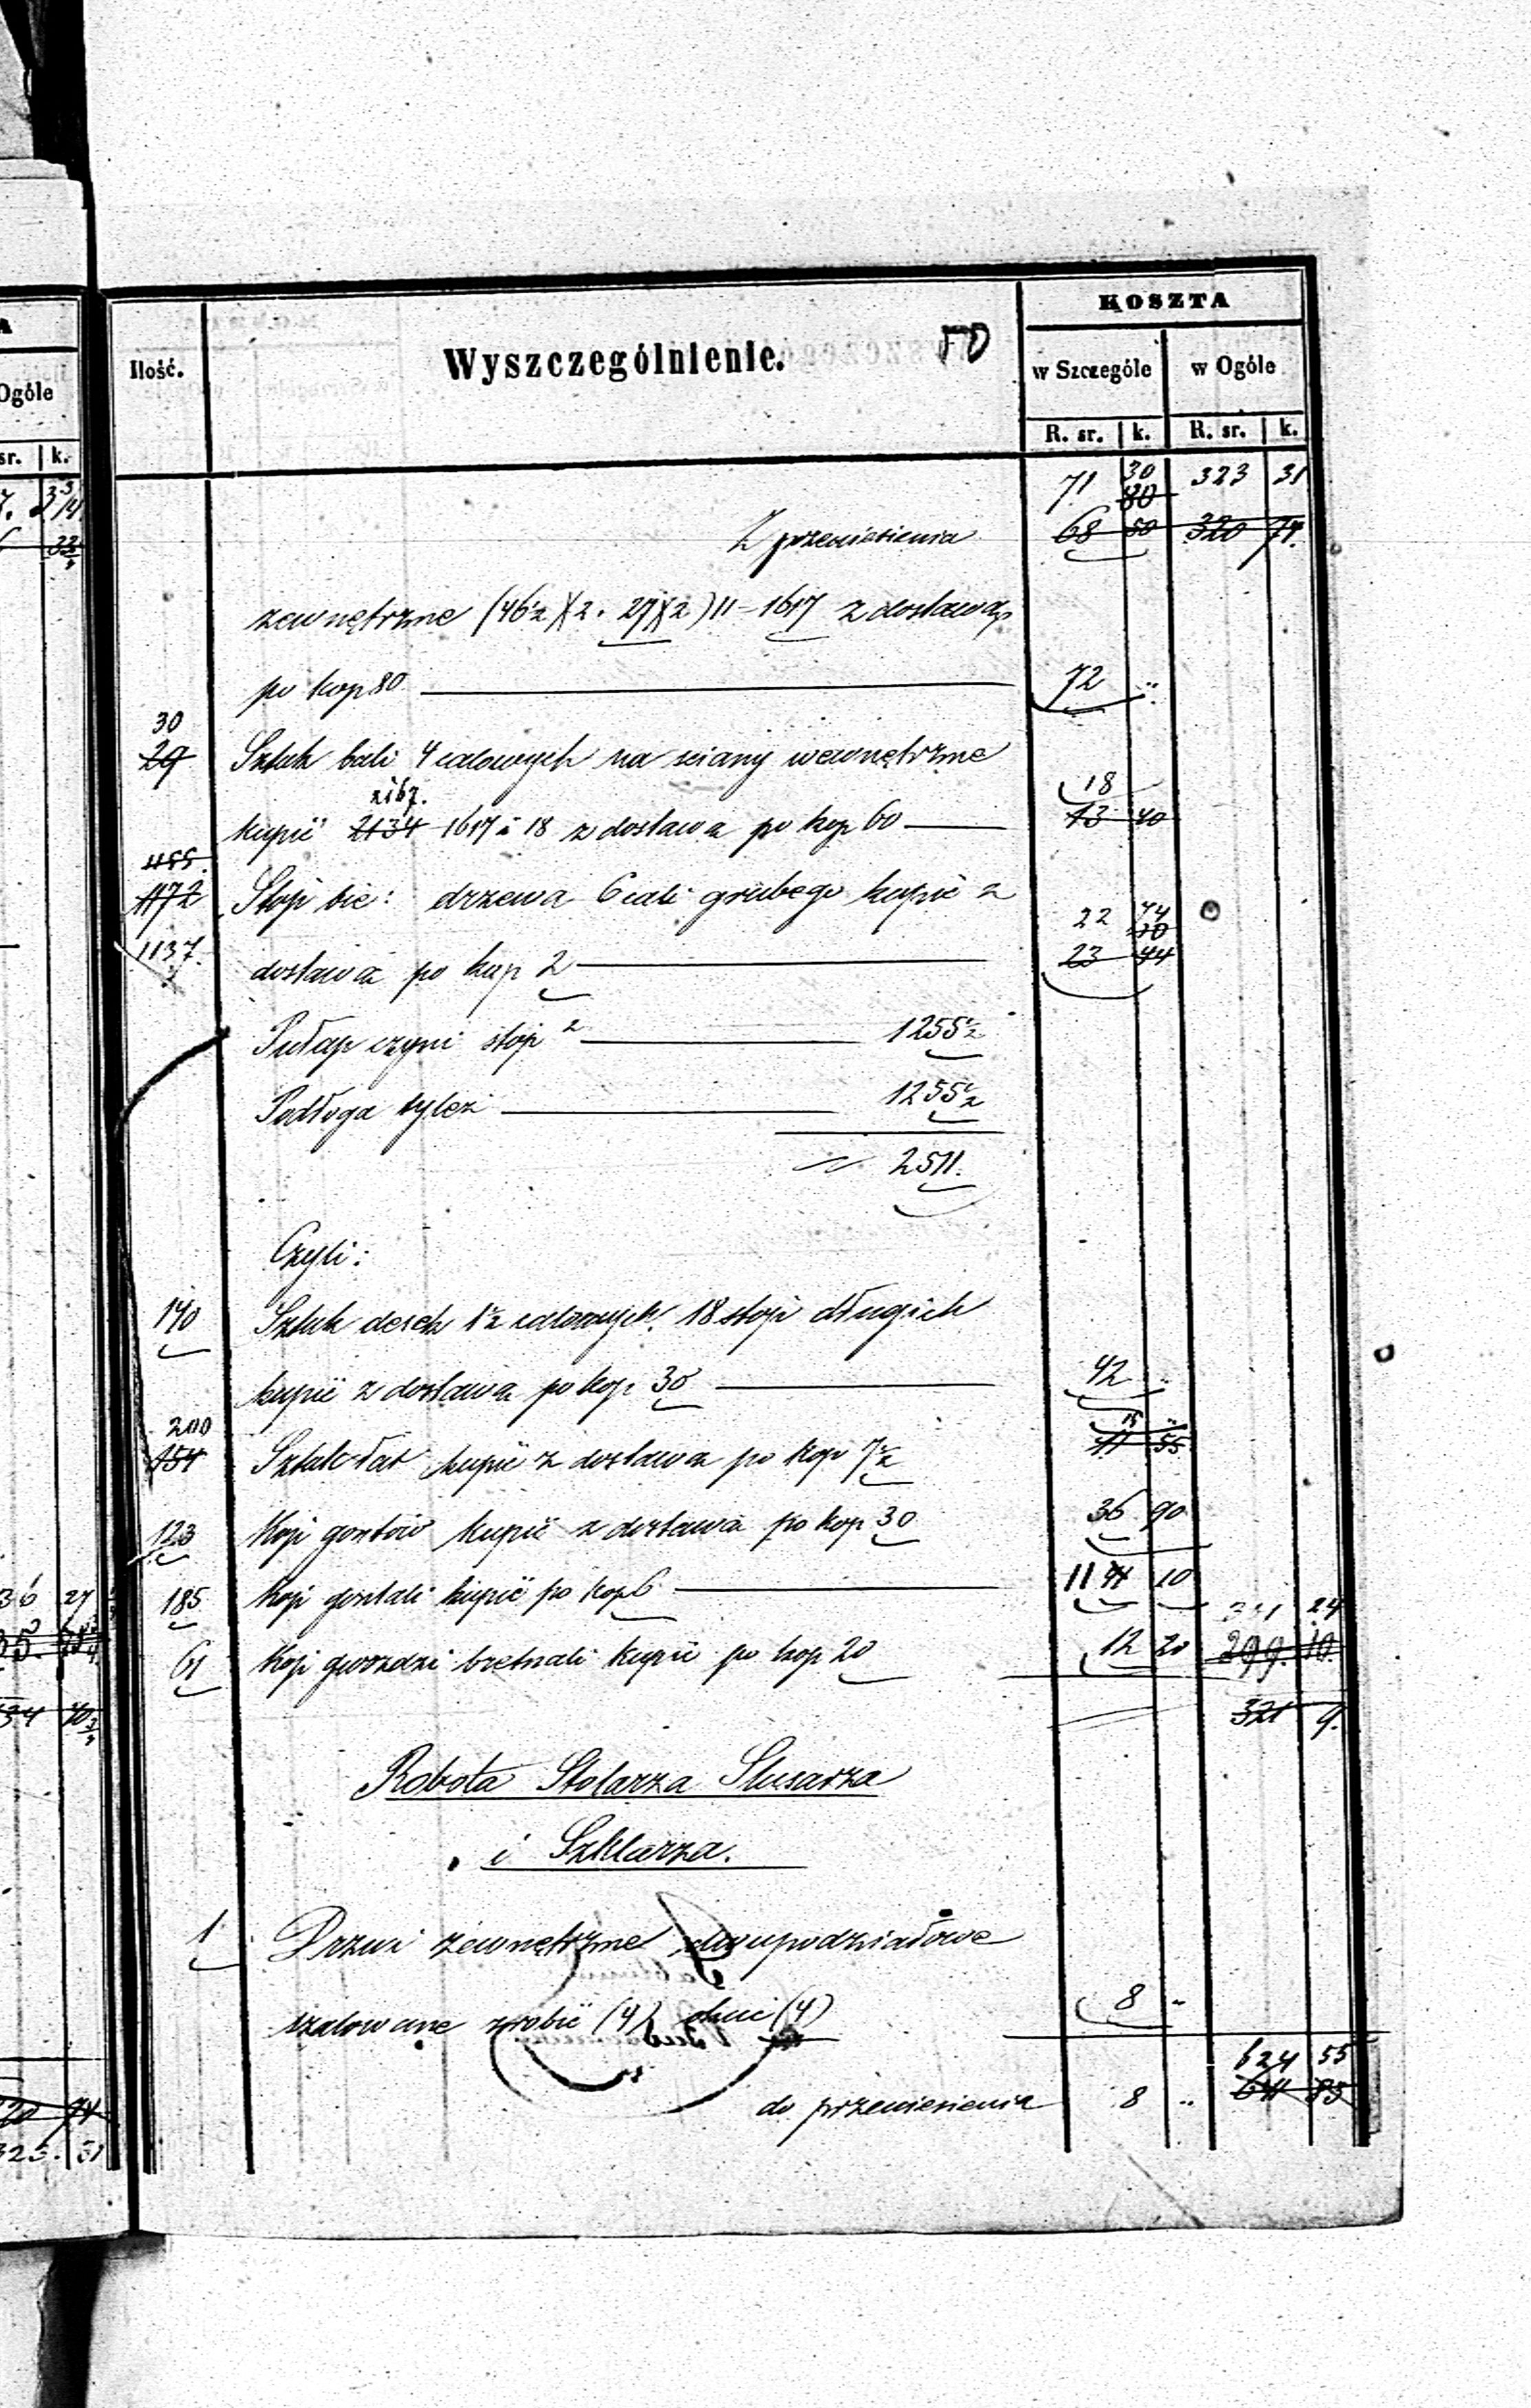 KOSZTA
Ilość. Wyszczególnienie. 50 w Szczególe w Ogóle
R. sr. k. R. sr. k.
71 30 323 31
80
Z przeniesienia 68 50 320 74.
zewnętrzne (46½)(2. 27)(2) 11 = 1617 z dostawą
po kop 80 72 "
30
29 Sztuk bali 4 calowych na sciany wewnętrzne
2167. 18
kupić 2134 1617 á 18 z dostawą po kop 60 13 40
1155.
1172 Stóp bie: drzewa 6 cali grubego kupić z
22 74
1137. dostawą po kop 2 23 44
Pułap czyni stóp 2 1255½
Podłoga tyleż 1255½
2511.
Czyli:
140 Sztuk desek 1½ calowych 18 stóp długich
kupić z dostawą po kop 30 42 "
200 15 "
154 Sztuk łat kupić z dostawą po kop 7½ 11 55
123 Kop gontów kupić z dostawą po kop 30 36 90
185 Kop gontali kupić po kop 6 11 11 10
24
61 Kop gwoździ bretnali kupić po kop 20 12 20 299. 10.
321 9.
Robota Stolarza Slusarza
i Szklarza.
1 Drzwi zewnętrzne dwupodziałowe
szalowane zrobić (4) okuć (4) 8 "
624 55
do przeniesienia 8 " 611 85